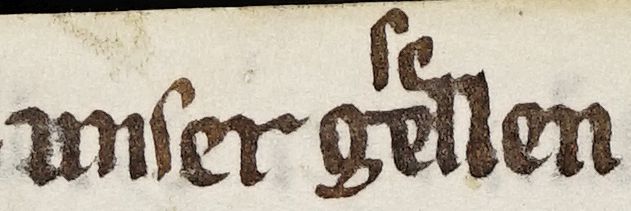 unſer geſellen